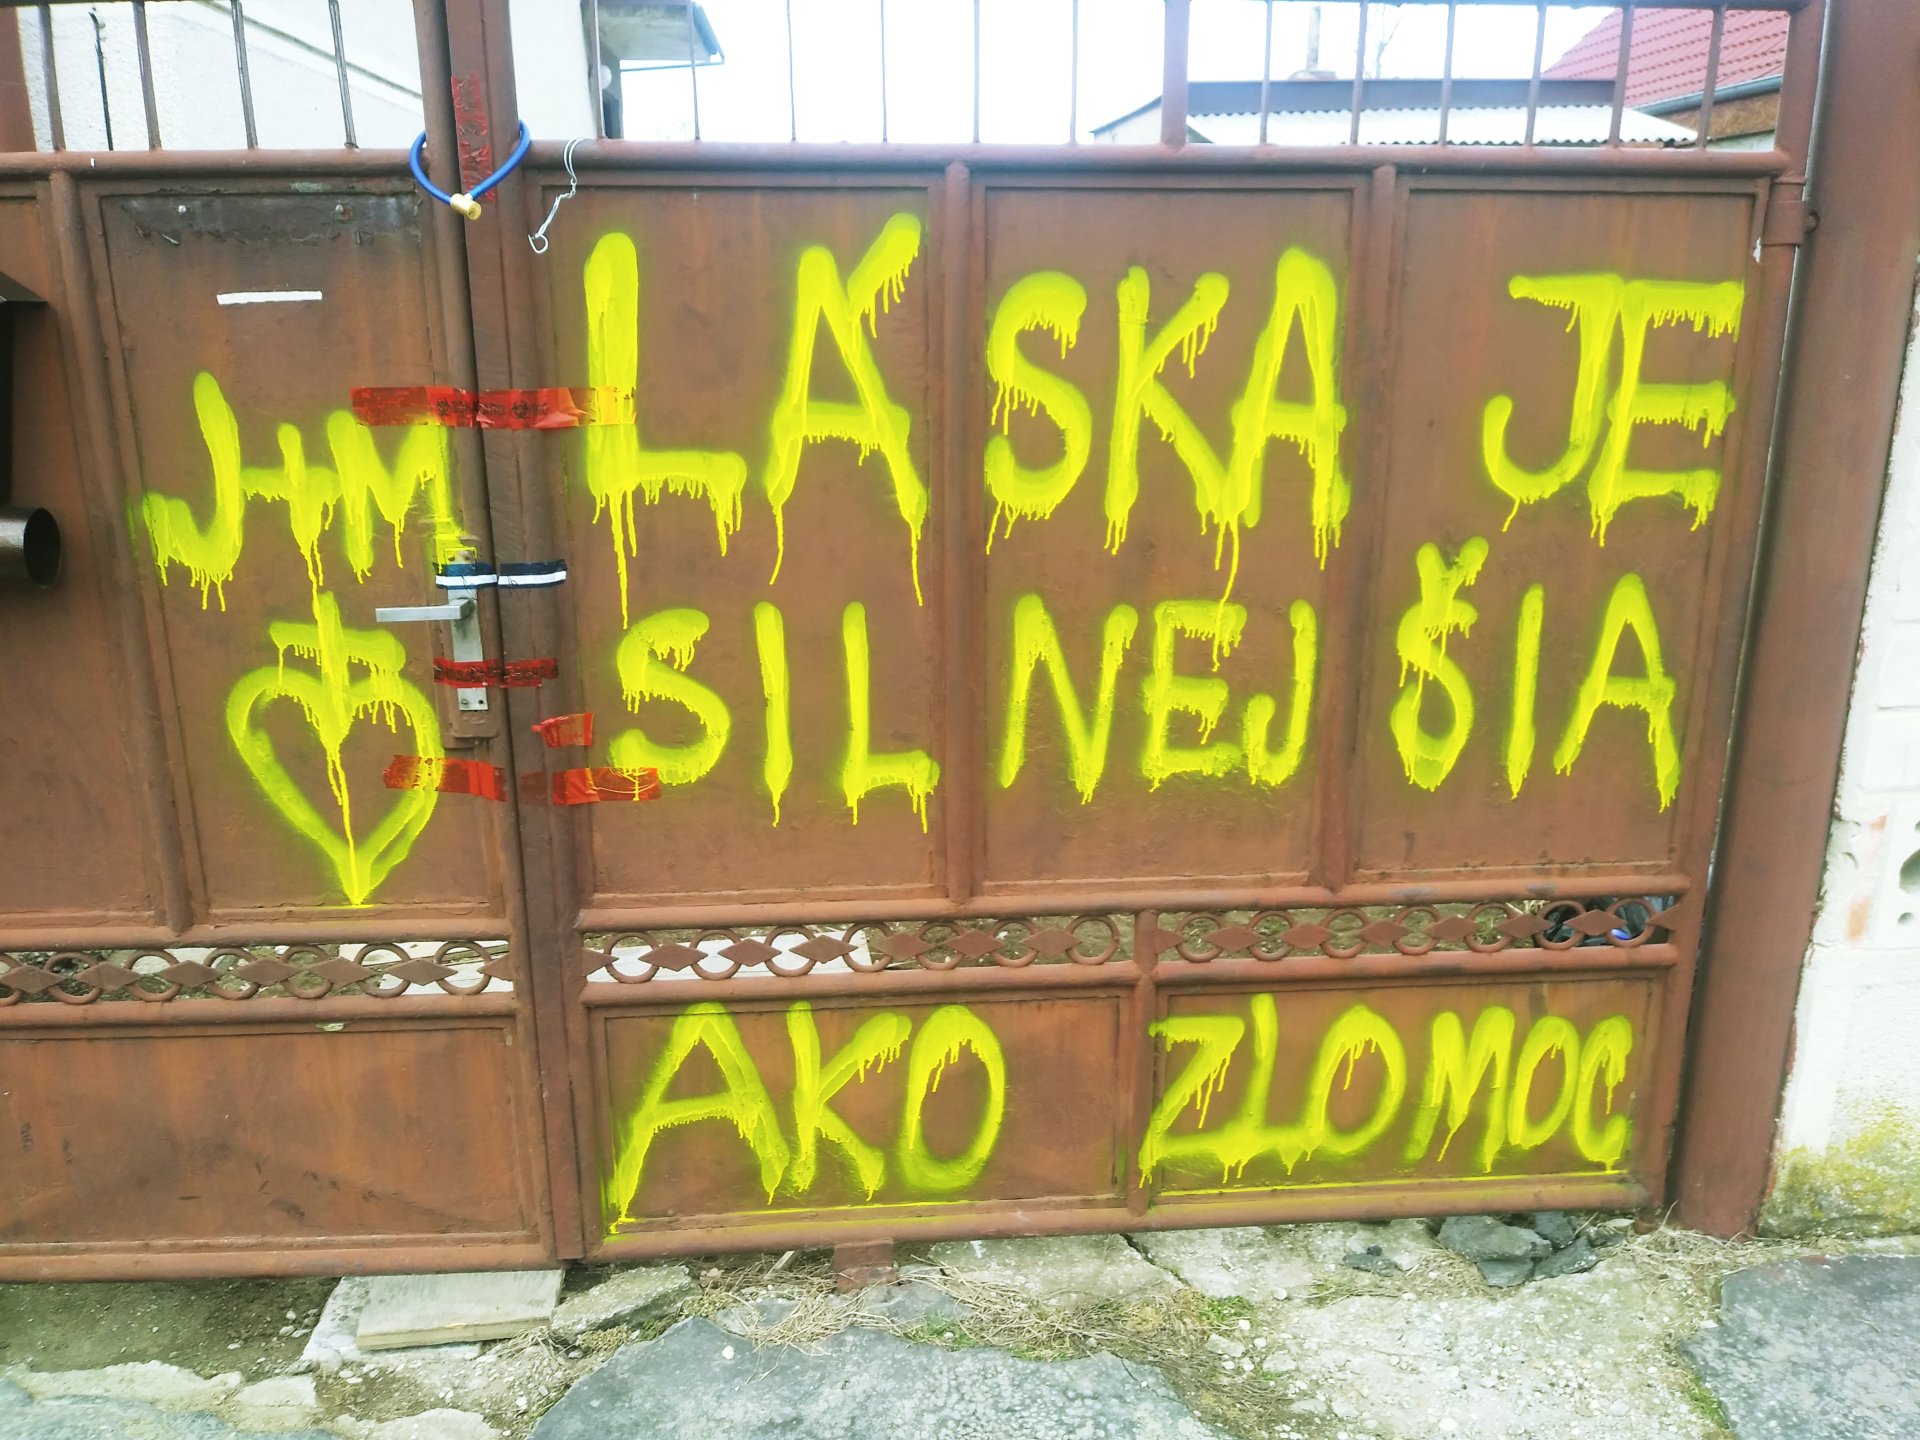 J+M
LÁSKA JE
SILNEJŠIA
AKO ZLOMOC